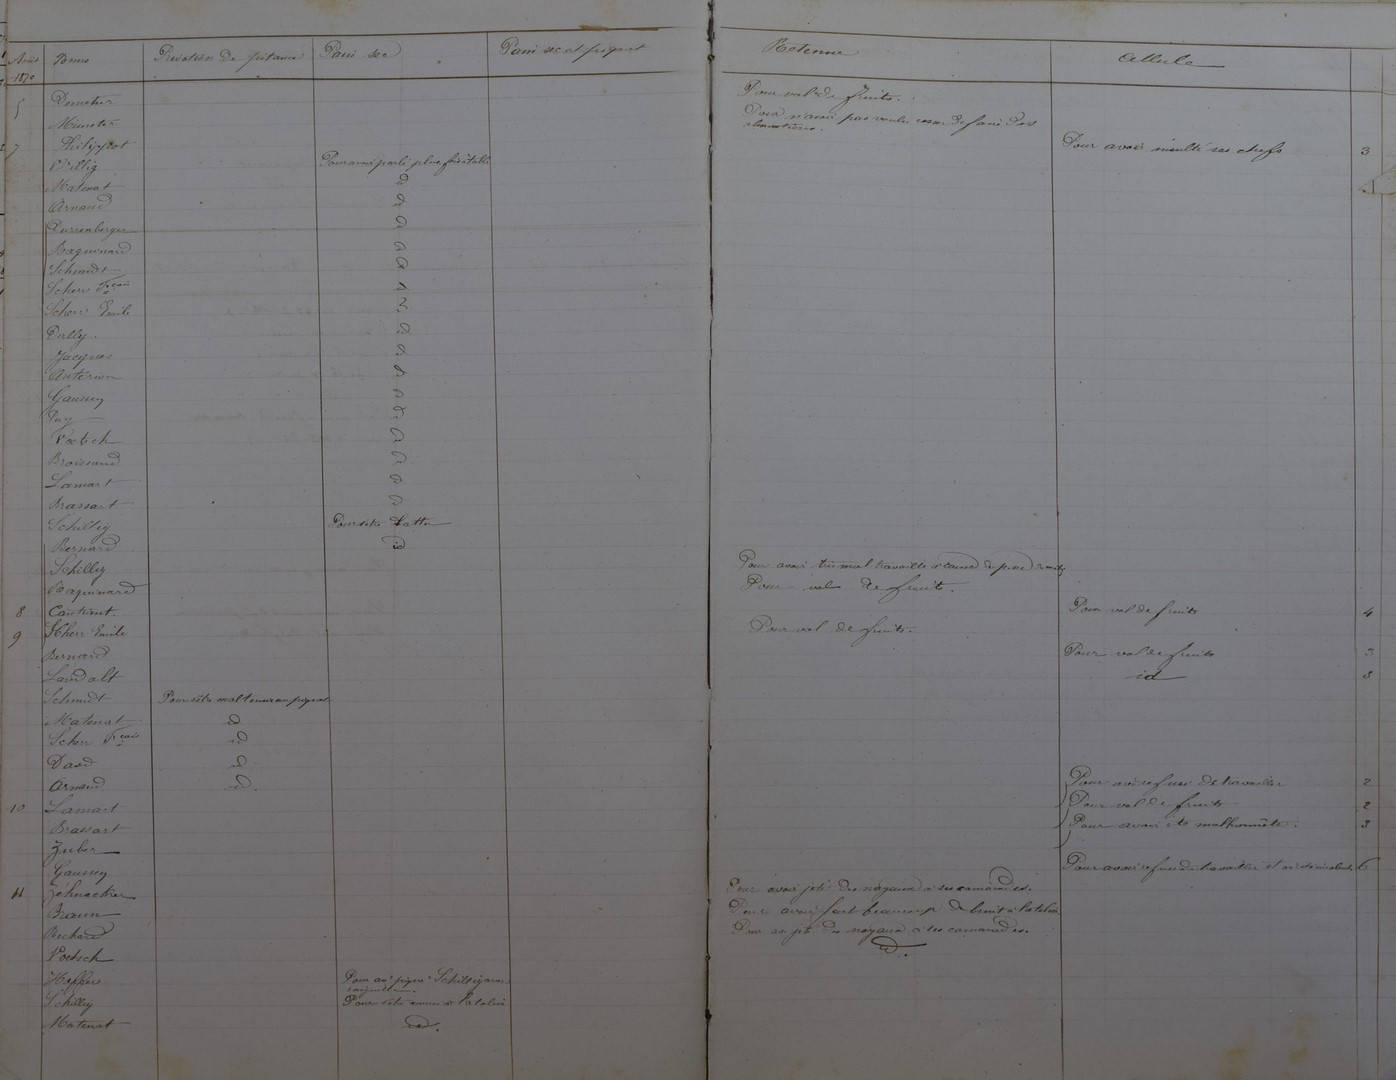 Août 1870 Noms Privation de pitance Pain sec Pain sec et piquet Retenue Cellule
5 Demeter Pour vol de fruits.
Munster Pour n'avoir pas voulu
7 Philippot Pour avoir insulté ses chefs 3
Schillig Pour avoir parlé plusieurs fois à table
Matenat id
Arnaud id
Durrenberger id
Baquinard id
Schmidt id
Scherr Fçois id
Scherr Emile id
Dolly. id
Jacques id
Antérion id
Gaussey id
Puy id
Poetsch id
Broissand id
Lamart id
Brassart id
Schillig Pour s'être battu
Bernard id
Schillig Pour avoir très mal travaillé
Baquinard Pour vol de fruits.
8 Coutrant. Pour vol de fruits 4
9 Scherr Emile Pour vol de fruits.
Bernard Pour vol de fruits 3
Landolt id 3
Schmidt Pour s'être mal tenus au piquet
Matenat id
Scherr Fçois id
David id
Arnaud id. Pour avoir refusé de travailler 2
10 Lamart Pour vol de fruits 2
Brassart Pour avoir été malhonnête. 3
Zuber
Gaussey Pour avoir refusé de travailler et 6
11 Schnacker Pour avoir jeté des noyaux à ses camarades.
Braun Pour avoir fait beaucoup de bruit à l'atelier
Richard Pour av. jeté des noyaux à ses camarades.
Poetsch id.
Heffer Pour av. piqué Schillig avec
Schillig Pour s'être amusé à l'atelier
Matenat id.